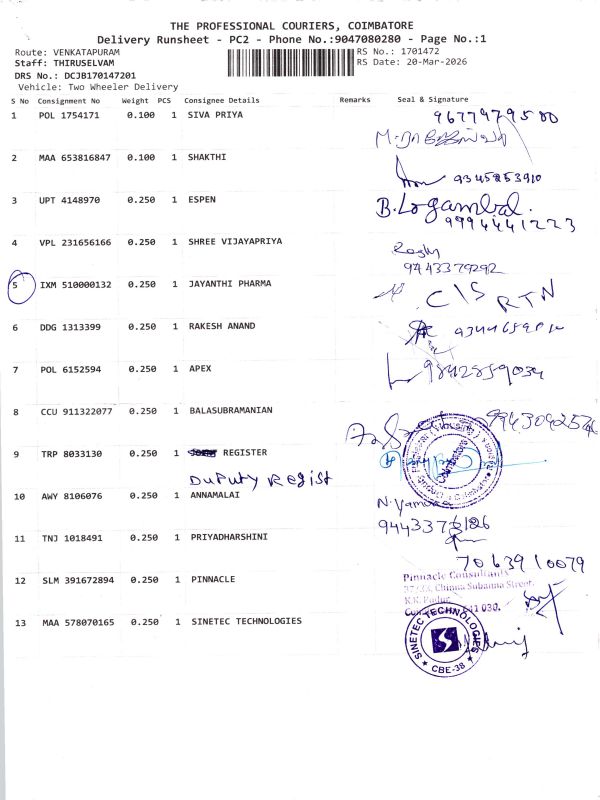 THE PROFESSIONAL COURIERS, COIMBATORE
Delivery Runsheet - PC2 - Phone No.:9047080280 - Page No.:1
Route: VENKATAPURAM RS No.: 1701472
Staff: THIRUSELVAM RS Date: 20-Mar-2026
DRS No.: DCJB170147201
Vehicle: Two Wheeler Delivery
S No Consignment No Weight PCS Consignee Details Remarks Seal & Signature
1 POL 1754171 0.100 1 SIVA PRIYA
2 MAA 653816847 0.100 1 SHAKTHI
9345853910
3 UPT 4148970 0.250 1 ESPEN B. Logambal.
9994441223
4 VPL 231656166 0.250 1 SHREE VIJAYAPRIYA
9443379292
5 IXM 510000132 0.250 1 JAYANTHI PHARMA C/S RTN
6 DDG 1313399 0.250 1 RAKESH ANAND
7 POL 6152594 0.250 1 APEX 9842859034
8 CCU 911322077 0.250 1 BALASUBRAMANIAN
9 TRP 8033130 0.250 1 REGISTER
DUPUTY Regist
10 AWY 8106076 0.250 1 ANNAMALAI
11 TNJ 1018491 0.250 1 PRIYADHARSHINI
7063910079
12 SLM 391672894 0.250 1 PINNACLE Pinnacle Consultants
Chinna Subanna Street,
K.K. Pudur,
641 030.
13 MAA 578070165 0.250 1 SINETEC TECHNOLOGIES SINETEC TECHNOLOGIES
S
CBE-38